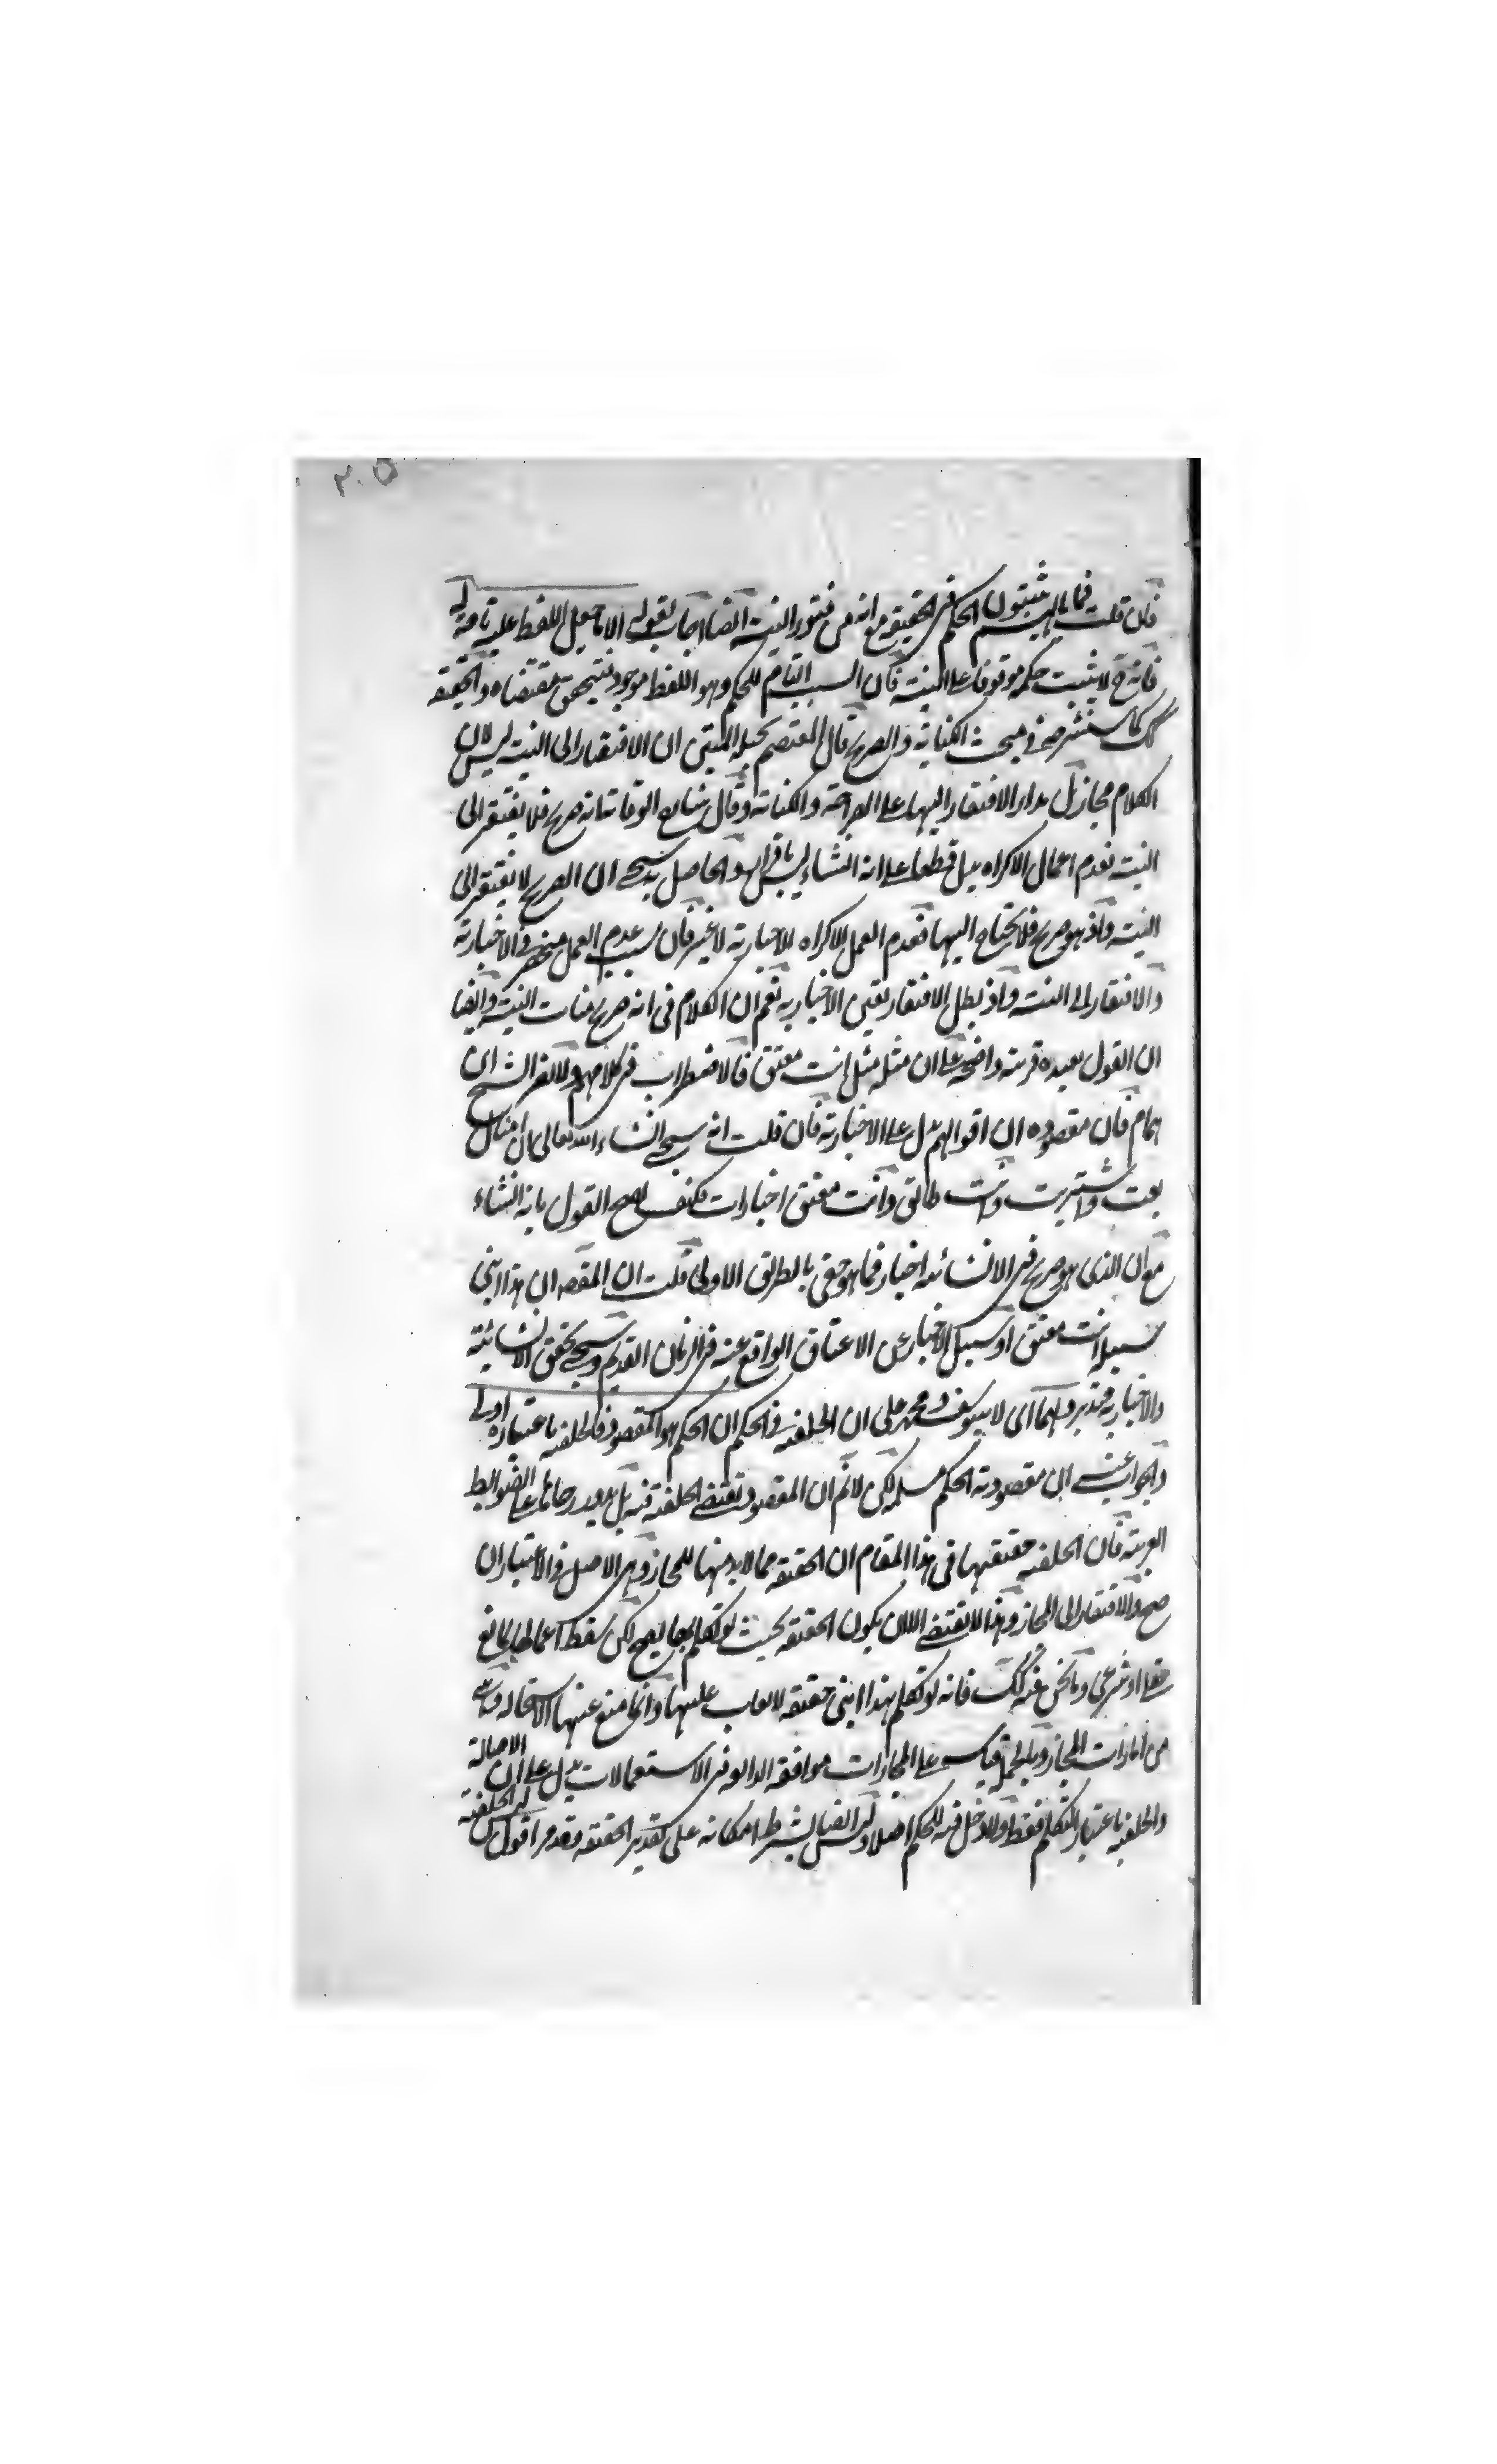 ٢٠٥
فان قلت فما بالهم يثبتون الحكم في الحقيقة مع انه من فتور النية ايضا اجاب بقوله الا ما جعل اللفظ علة تامة له
فانه ح لا يثبت حكمه موقوفا على النية فان السبب التام للحكم وهو اللفظ موجود فيتحقق مقتضاه والحقيقة
كك كما ستشرحه في مبحث الكناية والصريح قال المعتصم بحبله المتين ان الافتقار الى النية ليس لان
الكلام مجاز بل مدار الافتقار اليها على الصراحة والكناية وقال شارح الوقاية انه صريح فلا يفتقر الى
النية فعدم اعمال الاكراه يدل قطعا على انه انشاء ليس باقرار والحاصل سيجيء ان الصريح لا يفتقر الى
النية واذ هو صريح فلا يحتاج اليها فعدم العمل للاكراه للاخبارية لا غير فان سبب عدم العمل منحصر في الاخبارية
والافتقار الى النية واذ بطل الافتقار بقي الاخبارية نعم ان الكلام في انه صريح مناف النية وايضا
ان القول بعيده قرينة واضحة على ان مثله مثل انت معتق فالاضطراب في كلامهم ولا يضر الشيخ ابن
همام فان مقصوده ان اقوالهم يدل على الاخبارية فان قلت انه سيجيء انشاء الله تعالى ان امثال
بعت واشتريت وانت طالق وانت معتق اخبارات فكيف يصح القول بانه انشاء
مع ان الذي هو صريح في الانشائية اخبار فما هو حقق بالطريق الاولى قلت ان المقصود ان هذا ابني
سبيله انت معتق او سبيل الاخبار عن الاعتاق الواقع عنه في الزمان القديم وسيجيء تحقق الانشائية
والاخبارية فتدبر ولهما اي لابي يوسف ومحمد على ان الخلفية في الحكم ان الحكم هو المقصود فالخلفية باعتباره اولى
والجواب عنه ان مقصودية الحكم مسلمة لكن لا نم ان المقصودية تقتضي الخلفية فيه بل يدور رحاها على الضوابط
العربية فان الخلفية حقيقتها في هذا المقام ان الحقيقة مما لا بد منها للمجاز وهي الاصل في الاعتبار ان
صح والافتقار الى المجاز وهذا لا يقتضي الا ان يكون الحقيقة بحيث لو تكلم بها يصح لكن سقط اعمالها لمانع
عقلي او شرعي وما نحن فيه كك فانه لو تكلم بهذا ابني حقيقة لا يعاب عليها وانما منع عنها الاستحالة وهي
من امارات المجاز وبالجملة قياسه على المجازات موافقة في الاستعمالات يدل على ان الاصالة
والخلفية باعتبار التكلم فقط ولا دخل فيه للحكم اصلا وليس ايضا يشترط امكانه على تقدير الحقيقة فتدبر اقول ليس الخلفية